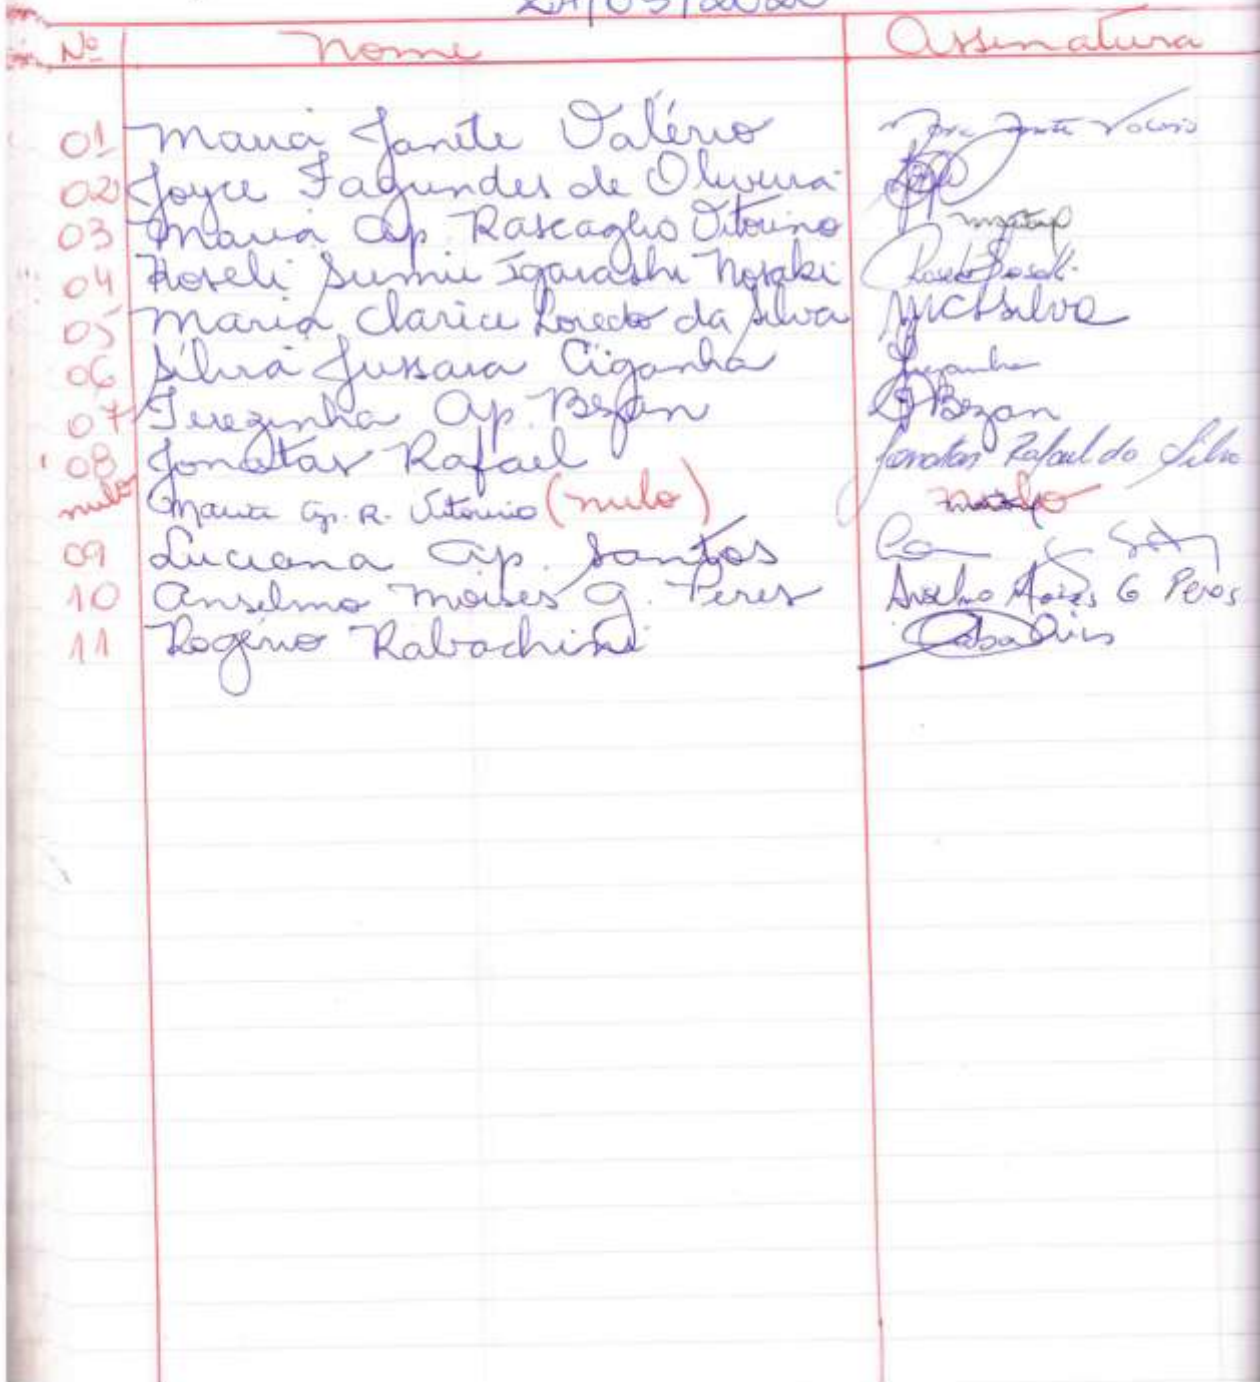 /03/2020
Nº Nome Assinatura
01 Maria Janete Valério
02 Joyce Fagundes de Oliveira
03 Maria Ap. Rascaglio Vitorino
04 Roseli Sumie Igarashi Nosaki
05 Maria Clarice Loredo da Silva MCLSilva
06 Silvia Jussara Ciganha
07 Terezinha Ap. Bezan Bezan
08 Jonatas Rafael Jonatas Rafael da Silva
nulo Maria Ap. R. Vitorino (nulo) nulo
09 Luciana Ap. Santos
10 Anselmo Moises G. Peres Anselmo Moises G Peres
11 Rogério Rabachini